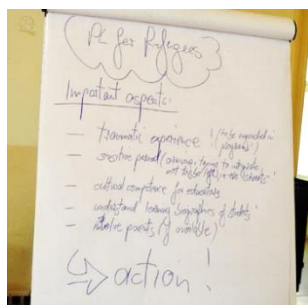 PL for Refugees
Important aspects:
— traumatic experience ! (to be expanded in
programs!)
— sensitive period (arriving, trying to integrate,
not to be
— cultural competence for educators
— understand learning biographies of students!
— involve parents (if available)
action!